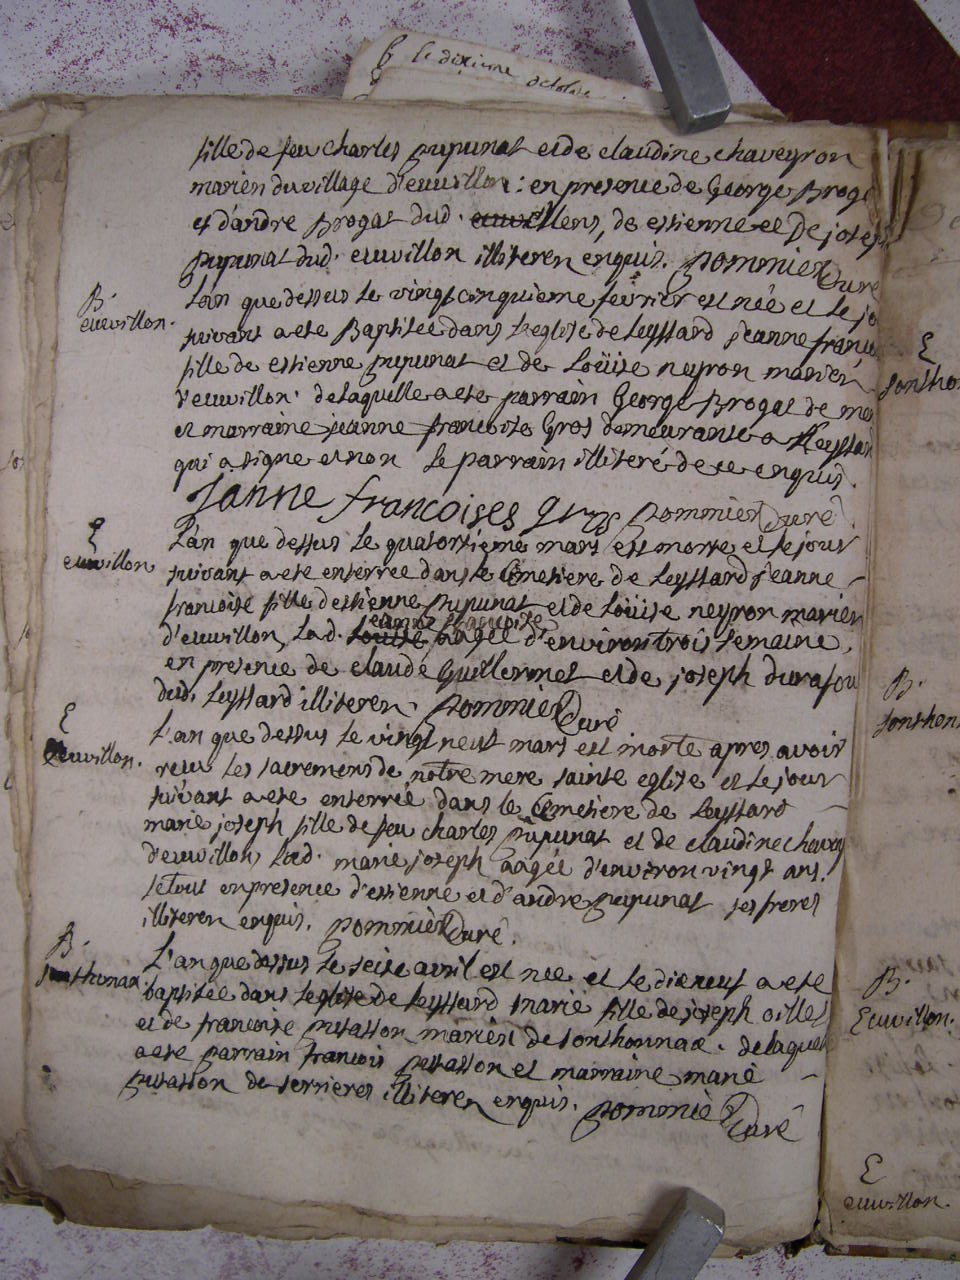 le dixieme octobre
fille de feu charles pupunat et de claudine chaveyron
mariés du village d'euuillon : en presence de George Broga
et d'andre Brogat dud. de estienne et De joseph
pupunat dud. euvillon illiteren enquis. pommier Curé
B.
euevillon.
L'an que dessus le vingtcinquieme fevrier est née et le jo
suivant a ete Baptisée dans l'eglise de Leyssard jeanne franço
fille de estienne pupunat et de Loüise neyron mariés
d'euuillon. de laquelle a ete parrain George Brogat de me
et marraine jeanne francoise Gros demeurante a Leyssar
qui a signe et non le parrain illiteré de ce enquis.
Janne francoises gros pommier Curé
E
euuvillon
L'an que dessus le quatorsieme mars est morte et le jour
suivant a ete enterrée dans le Cimetiere de Leyssard jeanne
francoise fille d'estienne pupunat et de Loüise neyron mariés
d'euuvillon, Lad. Louise jeanne francoise aagée d'environ trois semaine,
en presence de claude Guillermet et de joseph durafou
dud. Leyssard illiteren. pommier Curé
E
euvillon.
L'an que dessus le vingt neuf mars est morte apres avoir
receu les sacremens de notre mere sainte eglise et le jour
suivant a ete enterrée dans le Cemetiere de Leyssard
marie joseph fille de feu charles pupunat et de claudine chavey
d'euvillon, Lad. marie joseph aagée d'environ vingt ans.
le tout en presence d'estienne et d'andre pupunat ses freres
illiteren enquis. pommier Curé.
B.
sonthonax.
L'an que dessus le seise avril est née et le dixneuf a ete
baptisée dans l'eglise de Leyssard marie fille de joseph oillet
et de francoise putasson mariés de sonthonnax. de laquelle
a ete parrain francois putasson et marraine marie
putasson de serrieres illiteren enquis. pommié Curé
E
sonthon
B.
sonthon
B.
Euuvillon.
E
euuvillon.